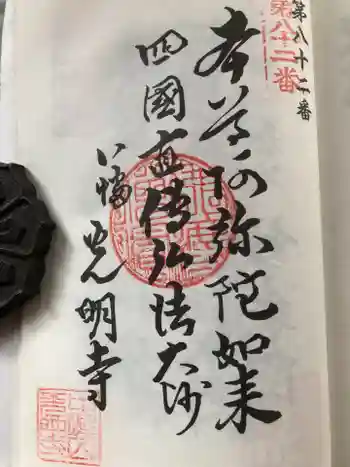 第八十二番
第八十二番
本尊阿弥陀如来
四國直傳弘法大師
八幡
光明寺